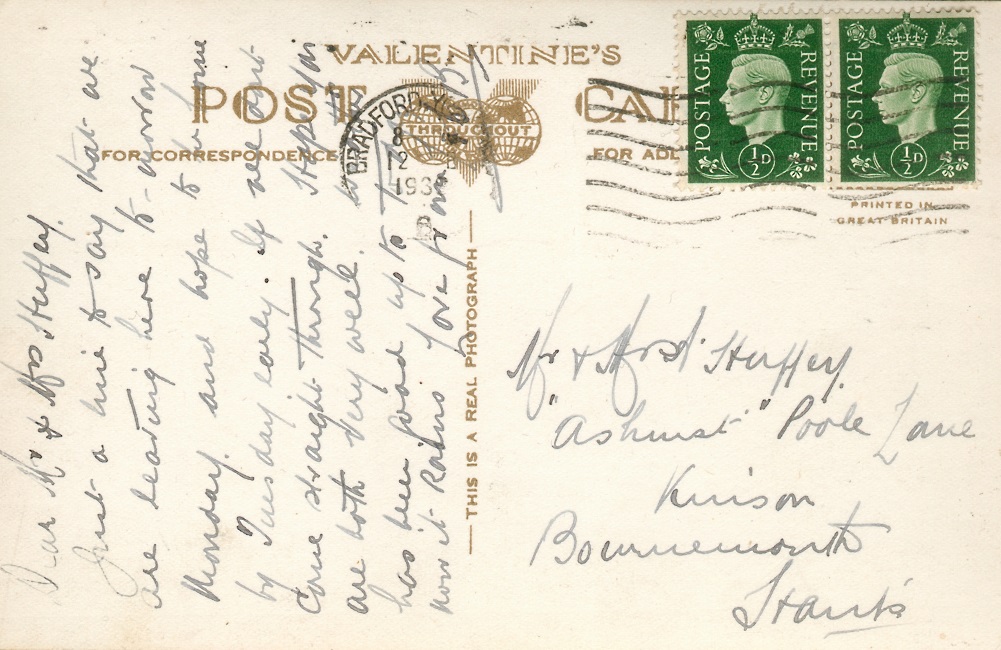 VALENTINE'S
POST CAR
FOR CORRESPONDENCE
THROUGHOUT
FOR ADD
POSTAGE REVENUE
½D
POSTAGE REVENUE
½D
PRINTED IN
GREAT BRITAIN
BRADFORD
12
193
THIS IS A REAL PHOTOGRAPH
Dear Mr & Mrs Huffey.
Just a line to say that we
are leaving here to-morrow
Monday. and hope to be home
by Tuesday early. if we don't
come straight through. Hope you
are both very well.
has been good up to
now it Rains Love from
Mr & Mrs Huffey
"Ashurst" Poole Lane
Kinson
Bournemouth
Hants